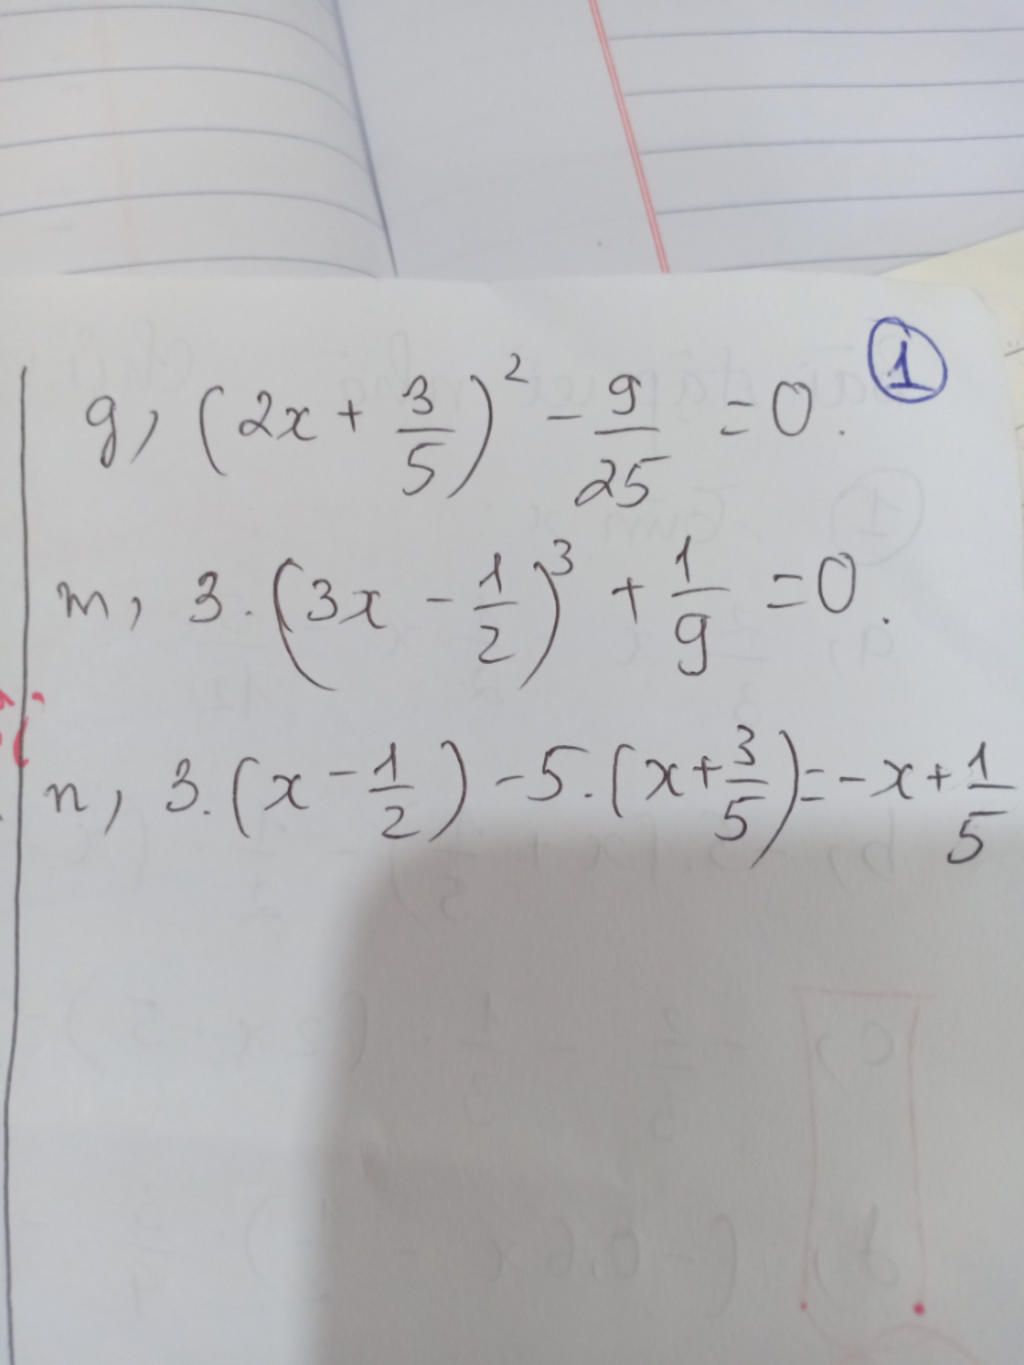 ①
g, (2x + 3/5)² - 9/25 = 0.
m, 3.(3x - 1/2)³ + 1/9 = 0.
n, 3.(x - 1/2) - 5.(x + 3/5) = -x + 1/5